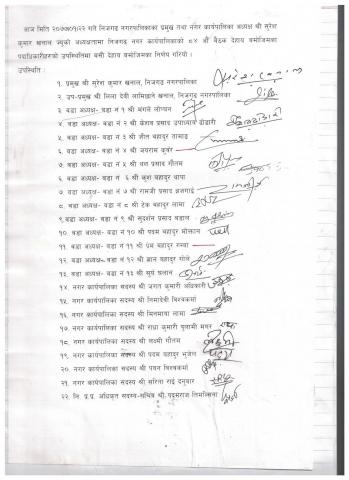 आज मिति २०७७।०१।२२ गते निजगढ नगरपालिकाका प्रमुख तथा नगर कार्यपालिका अध्यक्ष श्री सुरेश
कुमार खनाल ज्यूको अध्यक्षतामा निजगढ नगर कार्यपालिकाको औं बैठक देहाय बमोजिमका
पदाधिकारीहरुको उपस्थितिमा बसी देहाय बमोजिमका निर्णय गरियो ।
उपस्थिति :
१. प्रमुख श्री सुरेश कुमार खनाल, निजगढ नगरपालिका
२. उप-प्रमुख श्री लिला देवी लामिछाने खनाल, निजगढ नगरपालिका
३. वडा अध्यक्ष- वडा नं १ श्री मंगले लोप्चन
४. वडा अध्यक्ष- वडा नं २ श्री केशव प्रसाद उपाध्याय
५. वडा अध्यक्ष- वडा नं ३ श्री जीत बहादुर तामाङ
६. वडा अध्यक्ष- वडा नं ४ श्री जयराम कुवंर
७. वडा अध्यक्ष- वडा नं ५ श्री प्रसाद गौतम
८. वडा अध्यक्ष- वडा नं ६ श्री बहादुर थापा
७. वडा अध्यक्ष- वडा नं ७ श्री रामजी प्रसाद
८. वडा अध्यक्ष- वडा नं ८ श्री टेक बहादुर लामा
९. वडा अध्यक्ष- वडा नं ९ श्री सुदर्शन प्रसाद
१०. वडा अध्यक्ष- वडा नं १० श्री पदम बहादुर मोक्तान
११. वडा अध्यक्ष- वडा नं ११ श्री प्रेम बहादुर गम्बा
१२. वडा अध्यक्ष- वडा नं १२ श्री ज्ञान बहादुर गोले
१३. वडा अध्यक्ष- वडा नं १३ श्री सूर्य
१४. नगर कार्यपालिका सदस्य श्री जगत कुमारी अधिकारी
१५. नगर कार्यपालिका सदस्य श्री विश्वकर्मा
१६. नगर कार्यपालिका सदस्य श्री मिनमाया लामा
१७. नगर कार्यपालिका सदस्य श्री राधा कुमारी घुलामी मगर
१८. नगर कार्यपालिका सदस्य श्री लक्ष्मी गौतम
१९. नगर कार्यपालिका सदस्य श्री पदम बहादुर भुजेल
२०. नगर कार्यपालिका सदस्य श्री पवन विश्वकर्मा
२१. नगर कार्यपालिका सदस्य श्री सरिता राई दनुवार
२२. नि. प्र.प्र. अधिकृत सदस्य-सचिव श्री. पदमराज तिमल्सिना